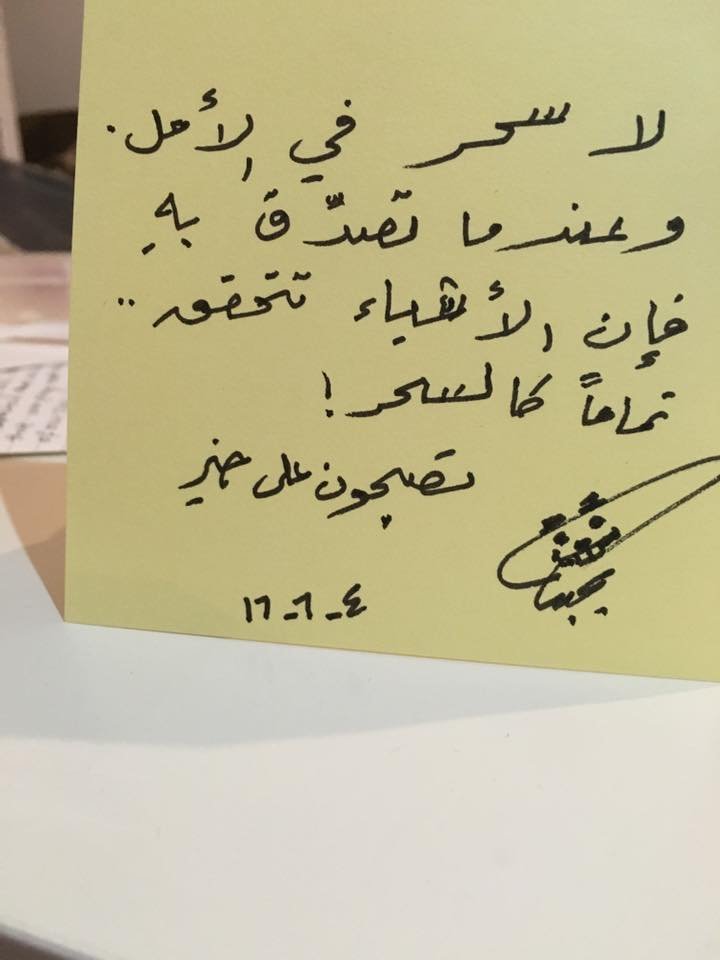 لا سحر في الأمل.
وعندما تصدّق بهِ
فإن الأشياء تتحقق..
تماماً كالسحر!
تصبحون على خير
٤-٦-١٦